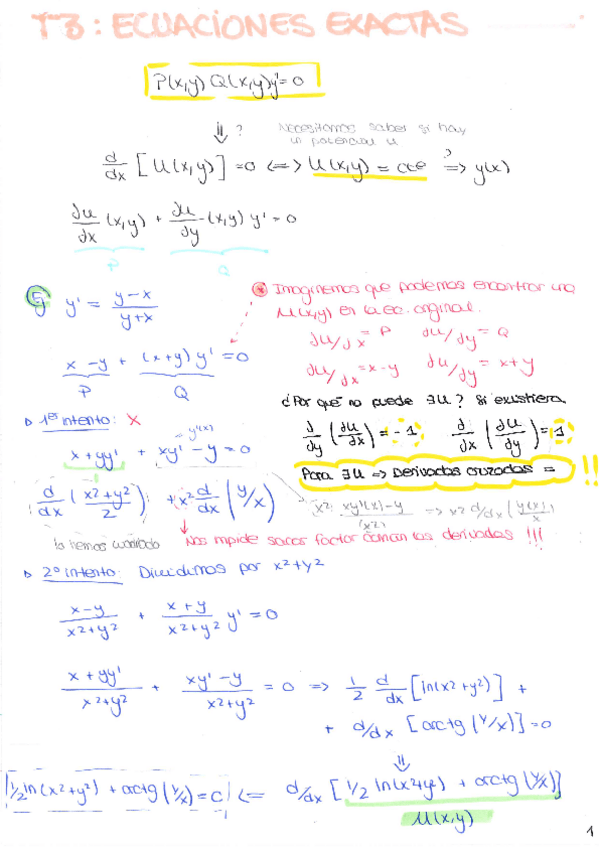 T3: ECUACIONES EXACTAS
P(x,y) Q(x,y)y'=0
⇓ ? Necesitamos saber si hay
un potencial u
d/dx [U(x,y)] =0 <=> U(x,y) = cte ?=> y(x)
∂u/∂x (x,y) + ∂u/∂y (x,y) y' = 0
P Q
5 y' = y-x / y+x
x-y + (x+y) y' = 0
P Q
* Imaginemos que podemos encontrar una
U(x,y) en la ec. original.
∂u/∂x = P ∂u/∂y = Q
∂u/∂x = x-y ∂u/∂y = x+y
¿Por qué no puede ∃u? Si existiera
∂/∂y (∂u/∂x) = -1 ∂/∂x (∂u/∂y) = 1
Para ∃u => Derivadas cruzadas = !!
1er intento: X
y'(x)
x+yy' + xy'-y = 0
d/dx (x²+y²/2) + x² d/dx (y/x)
x² xy'(x)-y/(x²) => x² d/dx (y(x)/x)
lo hemos cambiado
Nos impide sacar factor común las derivadas !!!
2º intento: Dividimos por x²+y²
x-y / x²+y² + x+y / x²+y² y' = 0
x+yy' / x²+y² + xy'-y / x²+y² = 0 => 1/2 d/dx [ln(x²+y²)] +
+ d/dx [arctg (y/x)] = 0
⇓
1/2 ln(x²+y²) + arctg (y/x) = C <= d/dx [1/2 ln(x²+y²) + arctg (y/x)]
U(x,y)
1